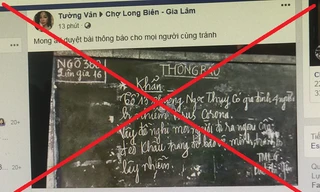 Tường Vân ▸ Chợ Long Biên - Gia Lâm
13 phút
Mong ad duyệt bài thông báo cho mọi người cùng tránh
NGÕ 300
Lâm gia 16
THÔNG BÁO
Khẩn
Tổ 15 phường Ngọc Thụy Có gia đình 4 người
bị nhiễm Virus Corona.
Vậy đề nghị mọi người đi ra ngoài cần
đeo khẩu trang để bảo vệ mình tránh
lây nhiễm.
20+